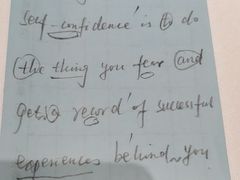 self-confidence is to do
the thing you fear and
get a record of successful
experiences behind you